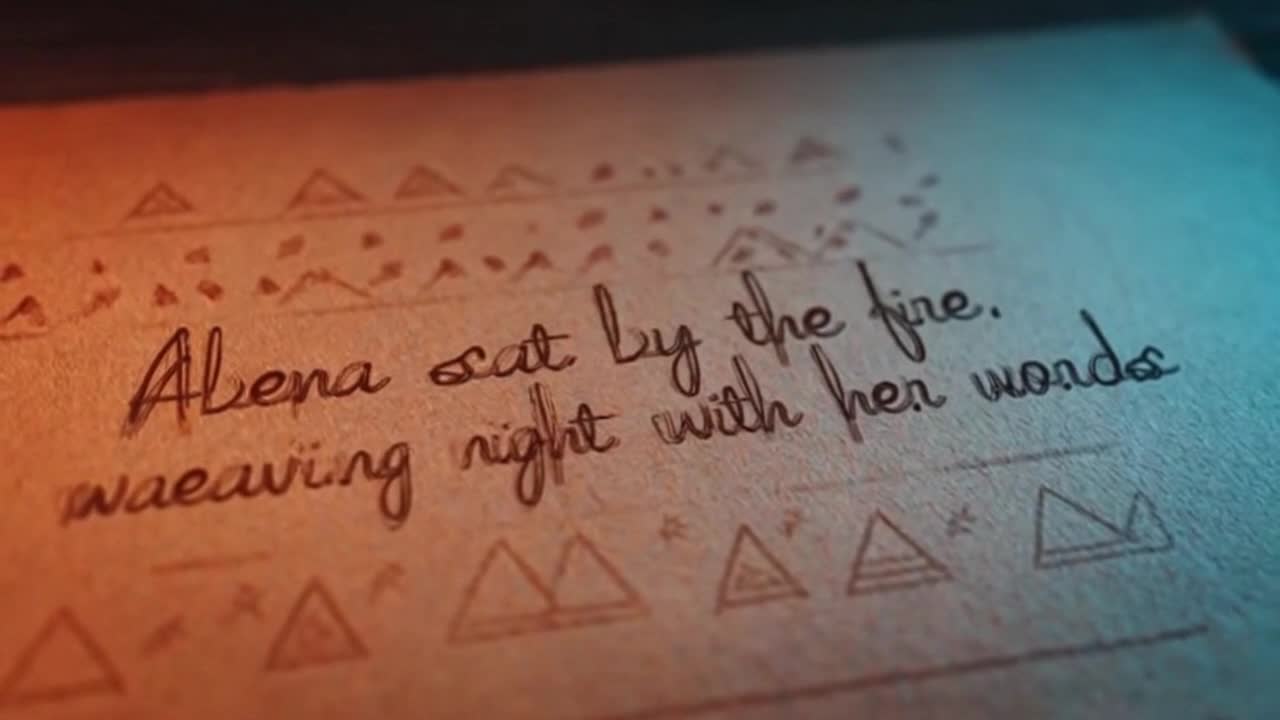 Abena sat by the fire.
waeaving night with her words